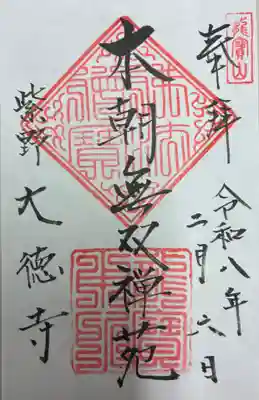 奉拝
令和八年
二月六日
本朝無双禅苑
紫野
大徳寺